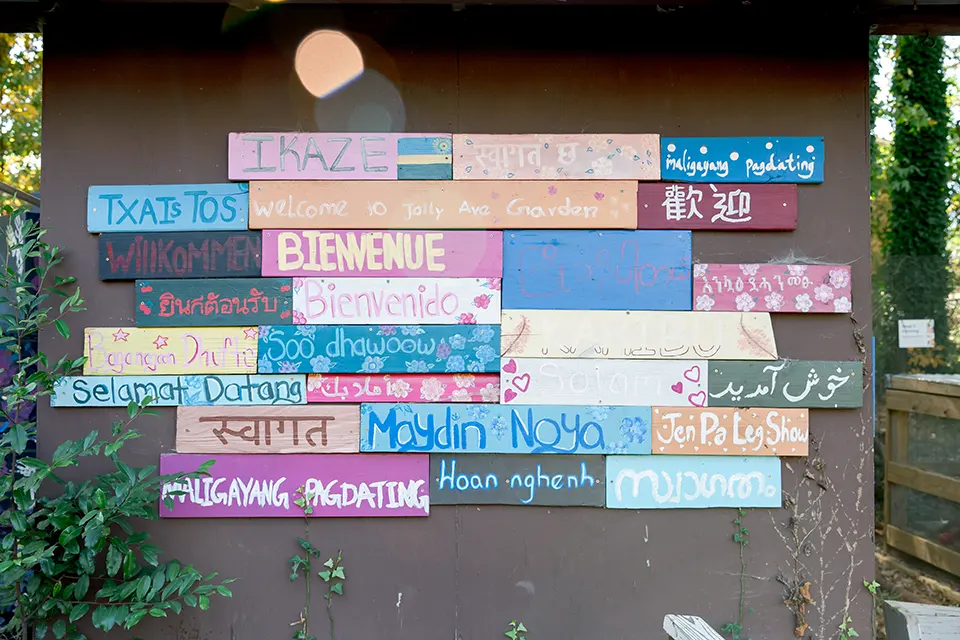 IKAZE
स्वागत छ
maligayang pagdating
TXAIS TOS
Welcome to Jolly Ave Garden
歡迎
WILLKOMMEN
BIENVENUE
ยินดีต้อนรับ
Bienvenido
Soo dhawoow
Salam
Selamat Datang
خوش آمدید
स्वागत
Maydin Noya
Jen Pa Leg Show
MALIGAYANG PAGDATING
Hoan nghenh
സ്വാഗതം